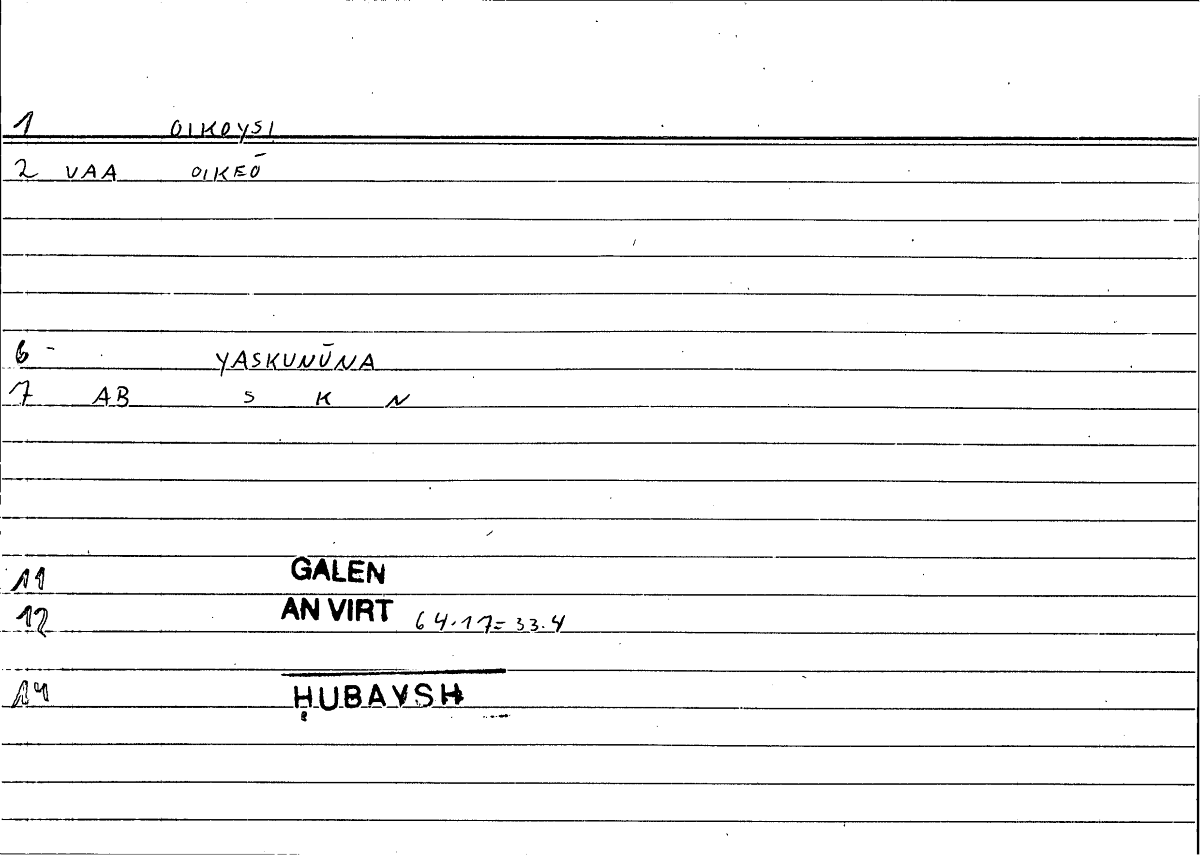 1 OIKOYSI
2 VAA OIKEŌ
6 - YASKUNŪNA
7 AB S K N
11 GALEN
12 AN VIRT 64.17=33.4
14 ḤUBAYSH